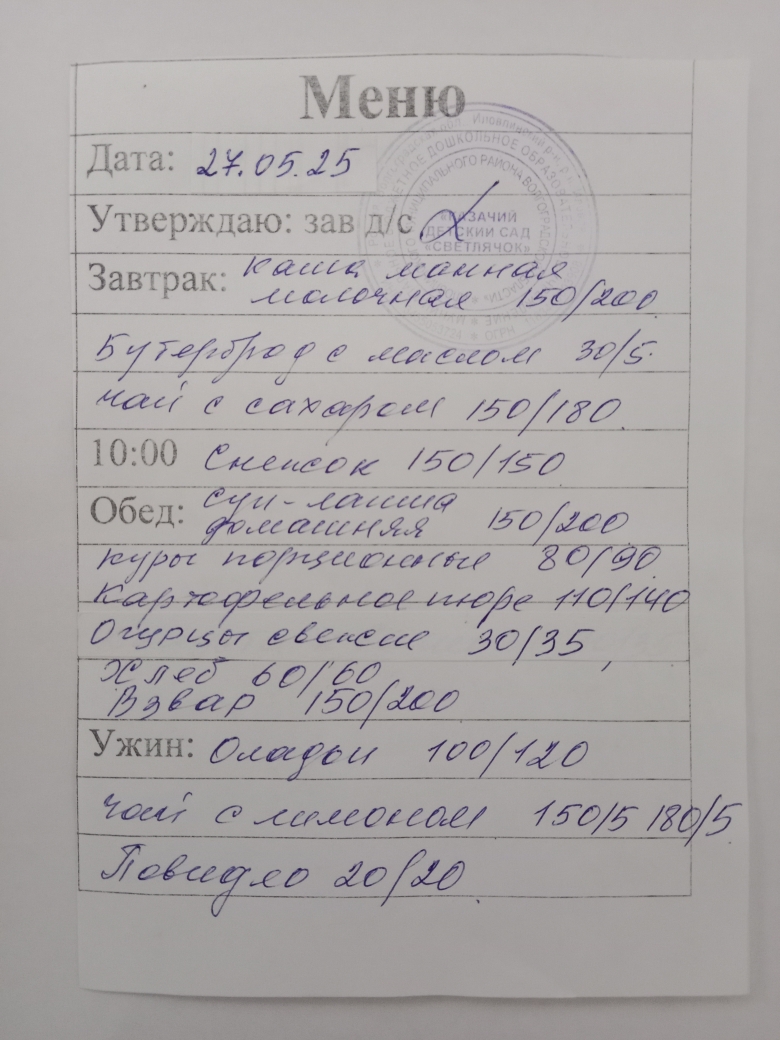 Меню
Дата: 27.05.25
Утверждаю: зав д/с
«КАЗАЧИЙ
ДЕТСКИЙ САД
«СВЕТЛЯЧОК»
Завтрак: каша манная
молочная 150/200
Бутерброд с маслом 30/5
чай с сахаром 150/180
10:00 Снежок 150/150
Обед: суп-лапша
домашняя 150/200
куры порционные 80/90
Картофельное пюре 110/140
Огурцы свежие 30/35,
Хлеб 60/60
Взвар 150/200
Ужин: Оладьи 100/120
чай с лимоном 150/5 180/5
Повидло 20/20